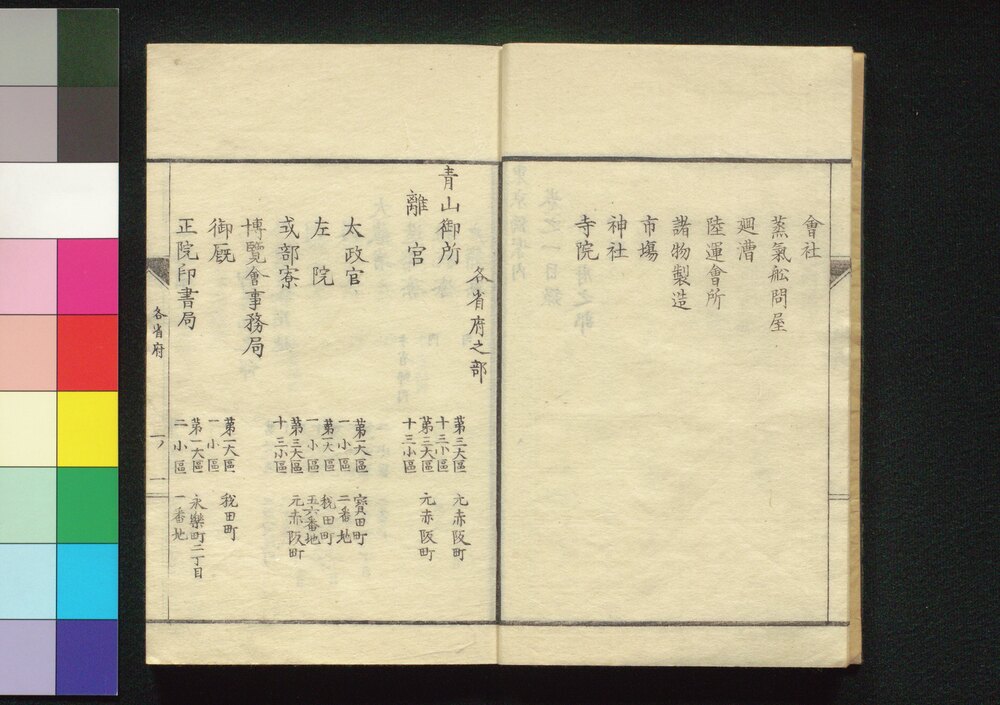 會社
蒸氣舩問屋
廻漕
陸運會所
諸物製造
市塲
神社
寺院
各省府之部
青山御所 第三大區十三小區 元赤阪町
離宮 第三大區十三小區 元赤阪町
太政官 第一大區一小區 寳田町二番地
左院 第一大區一小區 祝田町五六番地
式部寮 第三大區十三小區 元赤阪町
博覽會事務局
御厩 第一大區一小區 祝田町
正院印書局 第一大區二小區 永樂町二丁目一番地
各省府 一